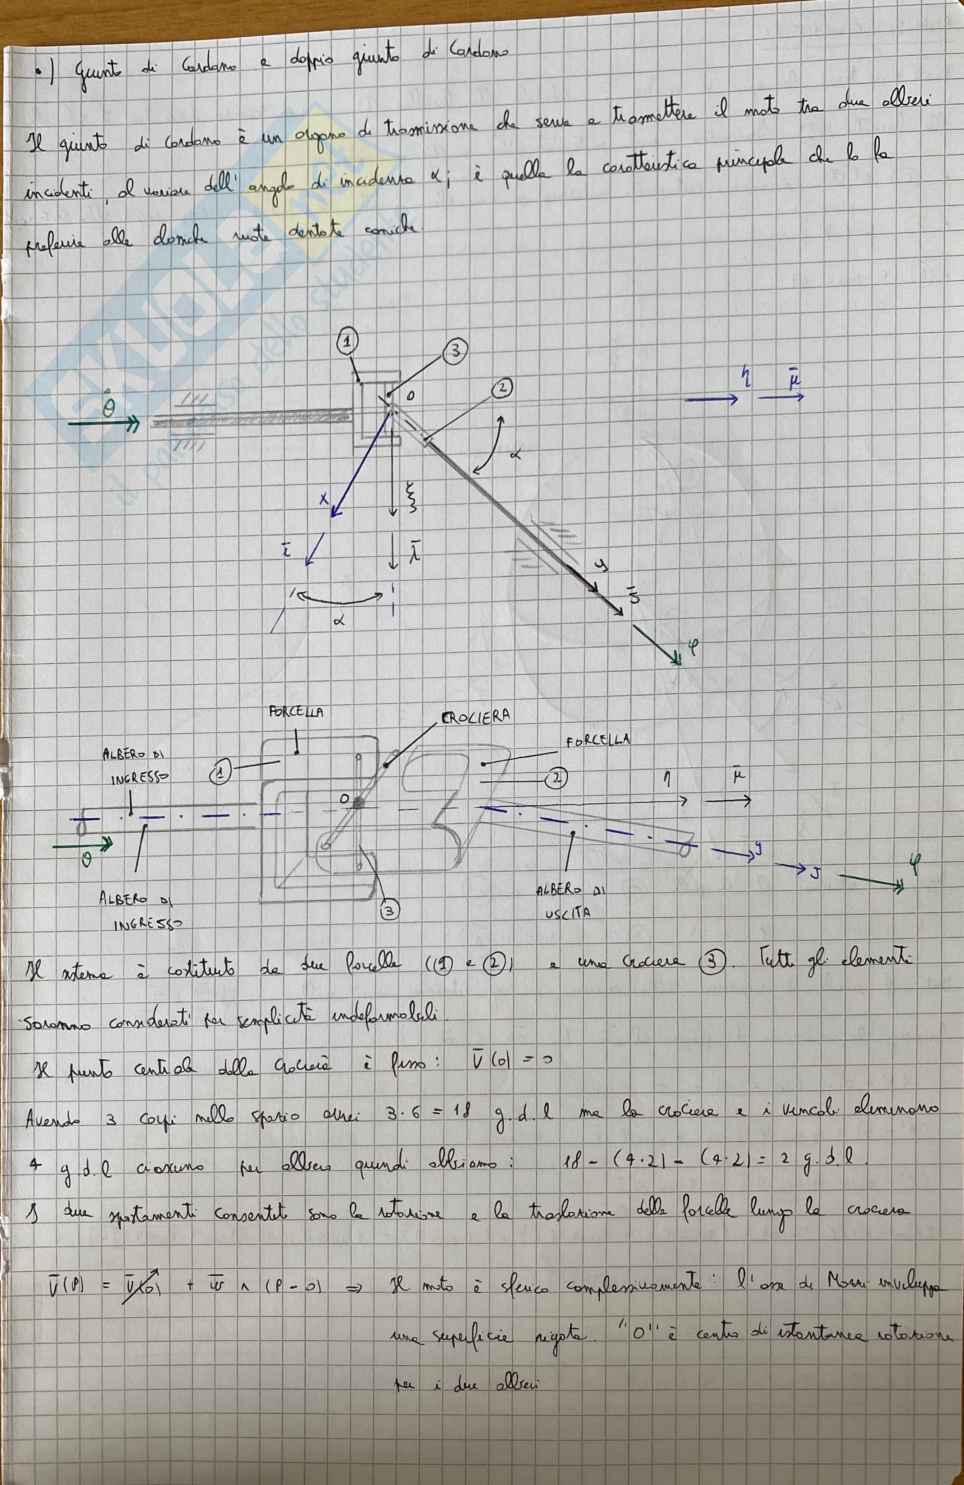 •) Giunto di Cardano e doppio giunto di Cardano
Il giunto di Cardano è un organo di trasmissione che serve a trasmettere il moto tra due alberi
incidenti, al variare dell'angolo di incidenza α; è quella la caratteristica principale che lo fa
preferire alle classiche ruote dentate coniche
SKUOLA.NET
il paradiso dello studente
1
3
θ̇
O
2
η μ̄
α
x
ξ
ī
λ̄
y
α
φ
FORCELLA
CROCIERA
FORCELLA
ALBERO DI
INGRESSO
1
2
η
μ̄
O
θ
y
φ
ALBERO DI
INGRESSO
3
ALBERO DI
USCITA
Il sistema è costituito da due forcelle (① e ②) e una crociera ③. Tutti gli elementi
saranno considerati per semplicità indeformabili.
Il punto centrale della crociera è fisso: V̄(O) = 0
Avendo 3 corpi nello spazio avrei 3·6 = 18 g.d.l ma la crociera e i vincoli eliminano
4 g.d.l ciascuno per albero quindi abbiamo: 18 - (4·2) - (4·2) = 2 g.d.l.
I due spostamenti consentiti sono la rotazione e la traslazione della forcella lungo la crociera
V̄(P) = V̄(O) + w̄ ∧ (P - O) ⇒ Il moto è sferico complessivamente: l'asse di Mozzi inviluppa
una superficie rigata. "O" è centro di istantanea rotazione
per i due alberi